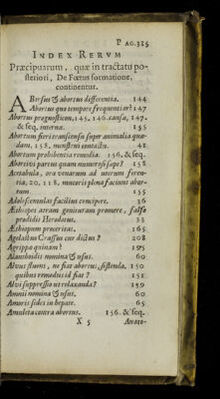 P AG.325
INDEX RERVM
Præcipuarum, quæ in tractatu po-
steriori, De Fœtus formatione,
continentur.
ABorsus & abortus differentia. 144
Abortus quo tempore frequentior? 147
Abortus prognosticon, 145. 146. causa, 147.
& seq. interna. 155
Abortum fieri transcenso super animalia quæ-
dam, 158. menstrui contactu. 41
Abortum prohibentia remedia. 156. & seq.
Abortivi partus quam numerosi sæpe? 158
Acetabula, ora venarum ad uterum feren-
tia, 20. 118. mucoris plena faciunt abor-
tum 155
Adolescentulas facilius concipere. 36
Æthiopes atram genituram promere, falsò
prodidit Herodotus. 33
Æthiopum proceritas. 165
Agelastus Crassus cur dictus? 208
Agrippa quinam? 195
Alantoidis nomina & usus. 60
Alvus fluens, ne fiat abortus, sistenda. 150
quibus remediis id fiat? 151
Alvi suppressio ut relaxanda? 159
Amnii nomina & usus. 60
Amoris sedes in hepate. 65
Amuleta contra abortus. 156. & seq.
X 5